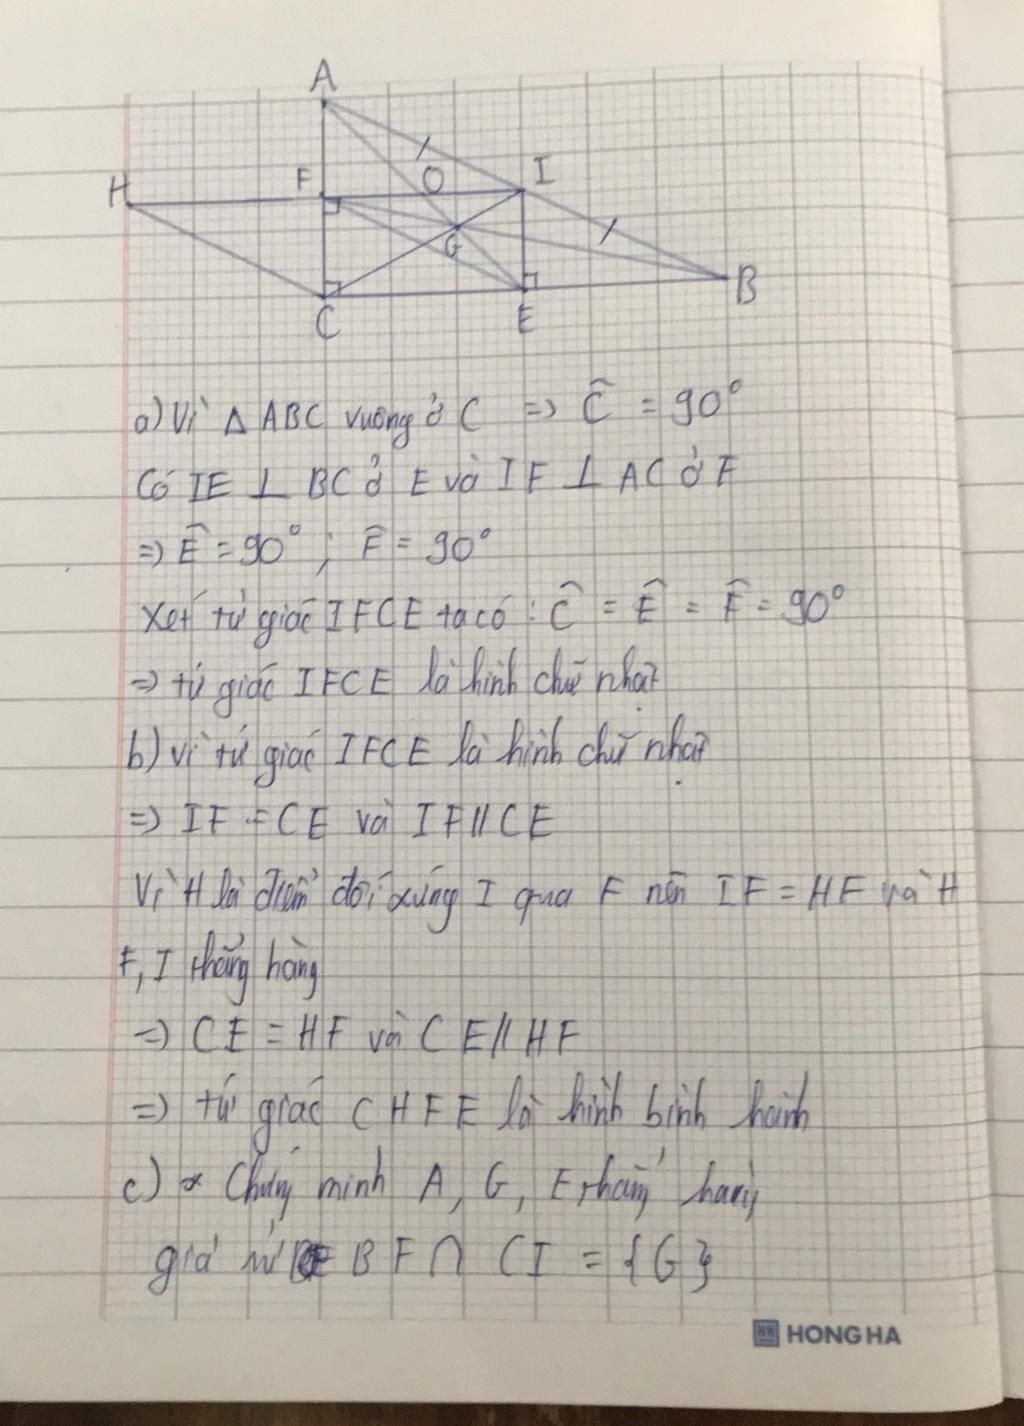 A
H
F
O
I
G
B
C
E
a) Vì Δ ABC vuông ở C => Ĉ = 90°
Có IE ⊥ BC ở E và IF ⊥ AC ở F
=> Ê = 90° ; F̂ = 90°
Xét tứ giác IFCE ta có : Ĉ = Ê = F̂ = 90°
=> tứ giác IFCE là hình chữ nhật
b) Vì tứ giác IFCE là hình chữ nhật
=> IF = CE và IF // CE
Vì H là điểm đối xứng I qua F nên IF = HF và H
F, I thẳng hàng
=> CE = HF và CE // HF
=> tứ giác CHFE là hình bình hành
c) * Chứng minh A, G, E thẳng hàng
giả sử BF ∩ CI = {G}
HH HONG HA